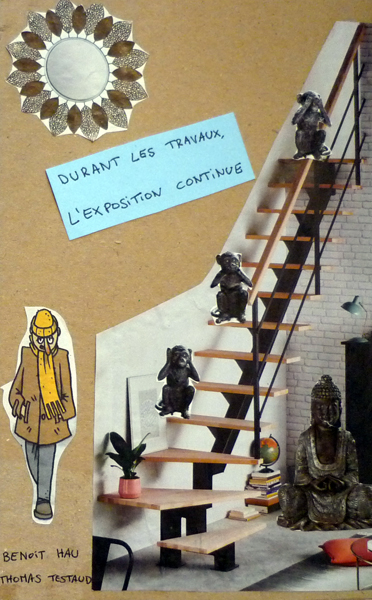 DURANT LES TRAVAUX,
L'EXPOSITION CONTINUE
BENOIT HAU
THOMAS TESTAUD